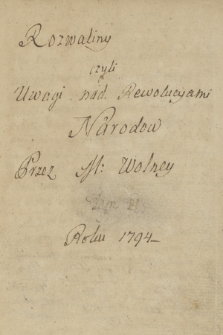 Rozwaliny
czyli
Uwagi nad Rewolucyami
Narodow
Przez Wolney
Roku 1794